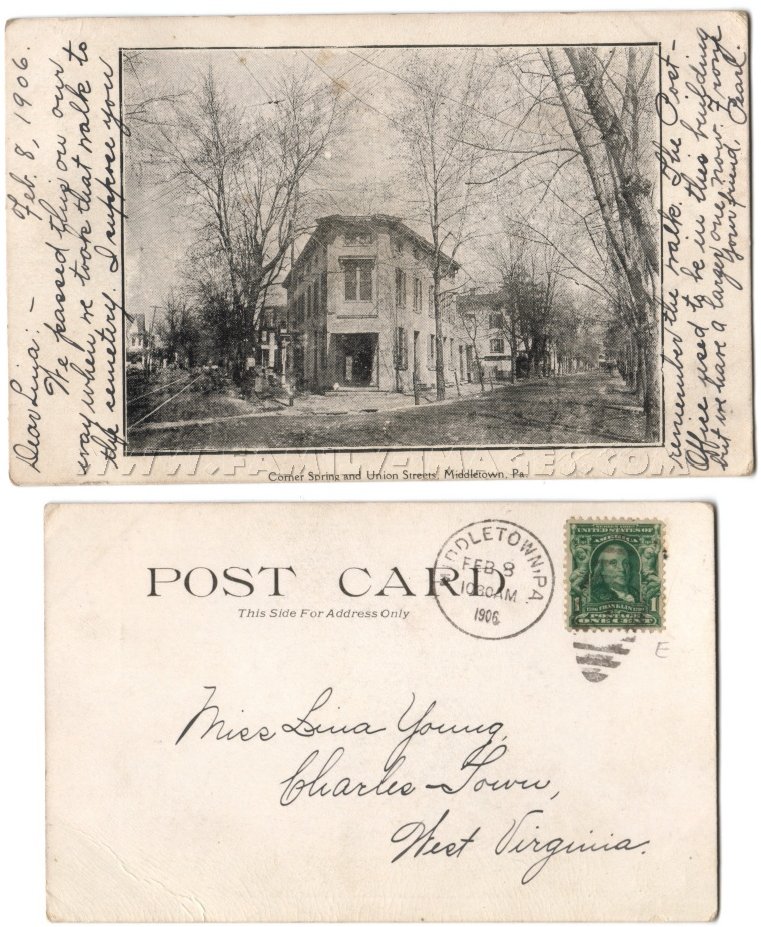 Feb. 8, 1906.
Dear Lina:-
We passed this on our
way when we took that walk to
the cemetery. I suppose you
remember the walk. The Post-
Office used to be in this building
but we have a larger one now. From
your friend, Pearl.
WWW.FAMILY-IMAGES.COM
Corner Spring and Union Streets, Middletown, Pa.
POST CARD
This Side For Address Only
MIDDLETOWN, PA.
FEB 8
1030AM
1906
UNITED STATES OF
AMERICA
FRANKLIN
1 1
POSTAGE
ONE CENT
E
Miss Lina Young,
Charles-Town,
West Virginia.